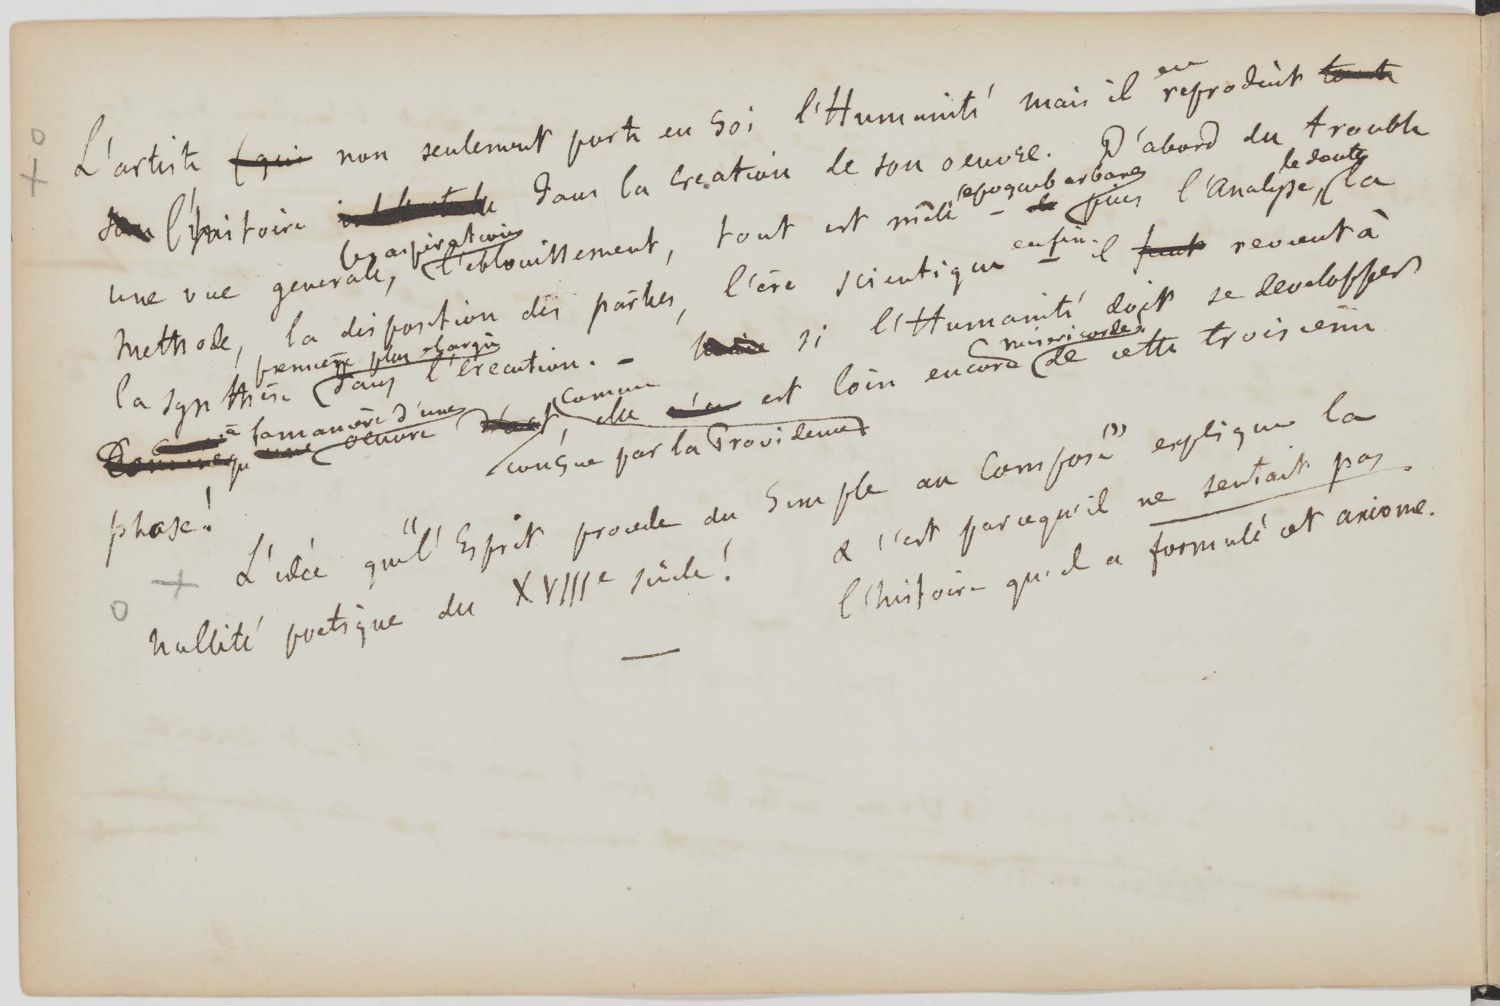 L'artiste non seulement porte en soi l'Humanité mais il en reproduit
l'histoire dans la creation de son oeuvre. D'abord du trouble
une vue generale, les aspirations l'eblouissement, tout est mêlé epoque barbare - puis l'analyse, le doute, la
methode, la disposition des parties, l'ère scientifique - enfin il revient à
la synthèse première plus elargie dans l'execution. - si l'Humanité doit se developper
à la manière d'une oeuvre comme
conçue par la Providence, elle est loin encore misericorde! de cette troisieme
phase!
L'idée "que l'Esprit procede du Simple au Composé" explique la
nullité poetique du XVIIIe siècle! & c'est parcequ'il ne sentait pas
l'histoire qu'il a formulé cet axiome.